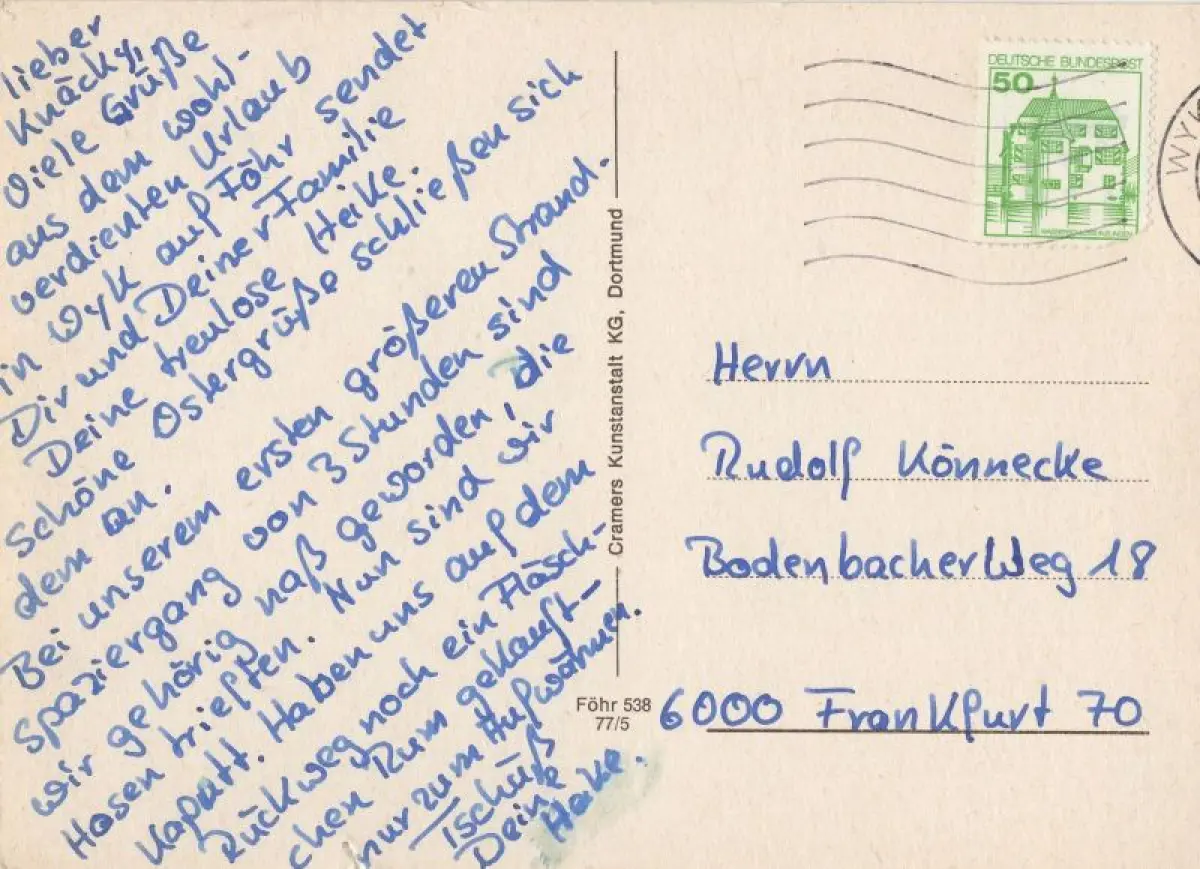 lieber
Knäcky,
Viele Grüße
aus dem wohl-
verdienten Urlaub
in Wyk auf Föhr sendet
Dir und Deiner Familie
Deine treulose Heike.
Schöne Ostergrüße schließen sich
dem an.
Bei unserem ersten größeren Strand.
spaziergang von 3 Stunden sind
wir gehörig naß geworden, die
Hosen trieften. Nun sind wir
kaputt. Haben uns auf dem
Rückweg noch ein Fläsch-
chen Rum gekauft-
nur zum Aufwärmen.
Tschüß
Deine
Heike.
Cramers Kunstanstalt KG, Dortmund
Föhr 538
77/5
DEUTSCHE BUNDESPOST
50
WYK
Herrn
Rudolf Könnecke
Bodenbacher Weg 18
6000 Frankfurt 70